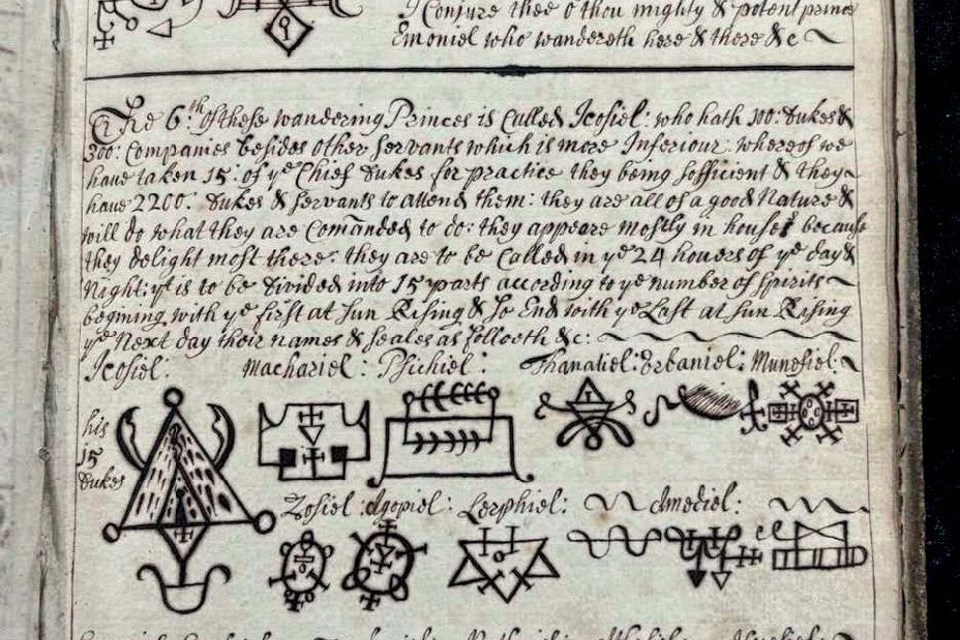 I Conjure thee o thou mighty & potent prince
Emoniel who wandereth here & there &c
The 6th of these wandering Princes is Called Icosiel: who hath 100: Dukes &
300: Companies besides other servants which is more Inferiour: whereof we
have taken 15: of ye Chief Dukes for practice they being sofficient & they
have 2200: Dukes & servants to attend them: they are all of a good Nature &
will do what they are Comanded to do: they appeare mostly in houses because
they delight most there: they are to be Called in ye 24 houers of ye day &
Night: yt is to be Divided into 15 parts according to ye number of spirits
begining with ye first at Sun Rising & so End with ye Last at Sun Rising
ye Next day their names & seales as folloeth &c:
Icosiel: Machariel: Psichiel: Thanatiel: Zosiel: Agapiel: Larphiel: Amediel:
his
15
Dukes